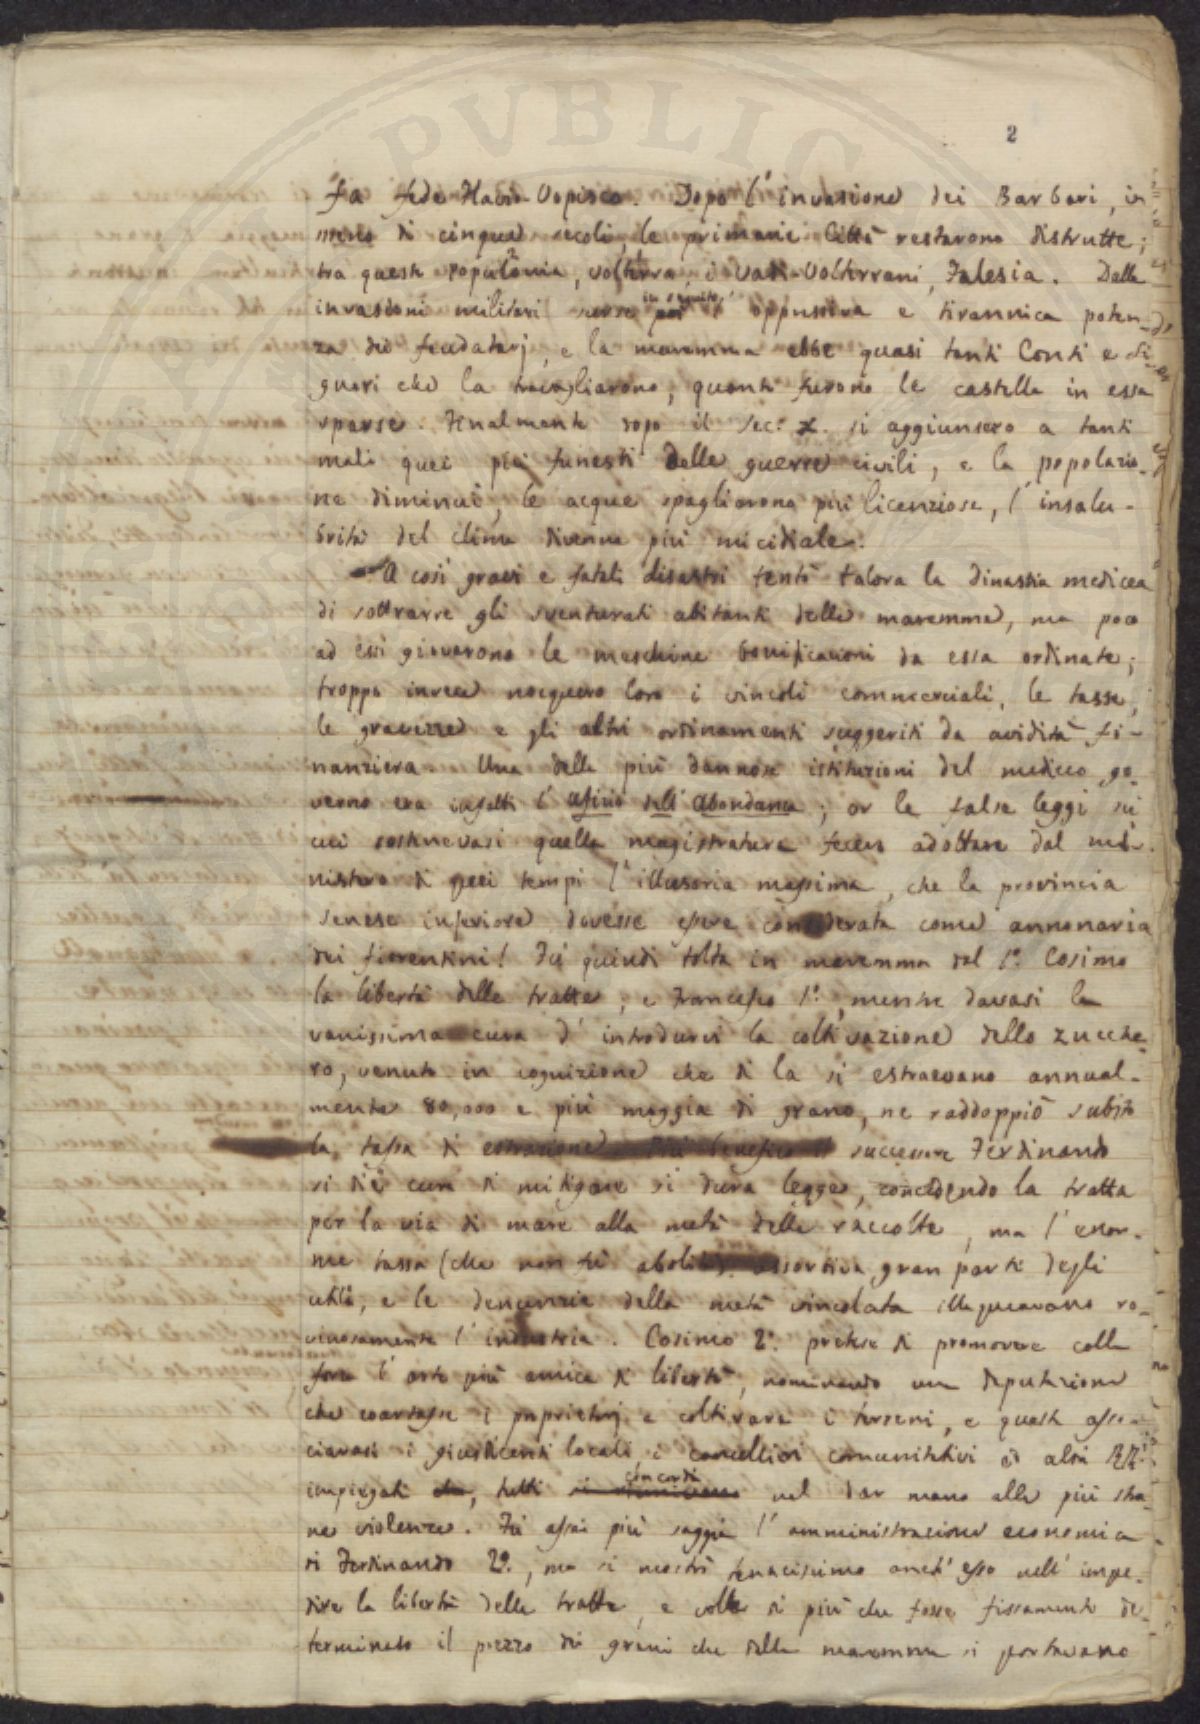 2
fa fede Flavio Vopisco. Dopo l'invasione dei Barbari, in
meno di cinque secoli, le primarie Città restarono distrutte;
tra queste Populonia, Volterra, i Vadi Volterrani, Falesia. Dalle
invasioni militari surse poi in seguito l'oppressiva e tirannica poten-
za dei feudatarj, e la maremma ebbe quasi tanti Conti e Si-
gnori che la travagliarono, quanti furono le castella in essa
sparse. Finalmente dopo il sec: X. si aggiunsero a tanti
mali quei più funesti delle guerre civili, e la popolazio-
ne diminuì, le acque spagliarono più licenziose, l'insalu-
brità del clima divenne più micidiale.
A così gravi e fatali disastri tentò talora la dinastia medicea
di sottrarre gli sventurati abitanti della maremma, ma poco
ad essi giovarono le meschine bonificazioni da essa ordinate;
troppo invece nocquero loro i vincoli commerciali, le tasse,
le gravezze e gli altri ordinamenti suggeriti da avidità fi-
nanziera. Una delle più dannose istituzioni del mediceo go-
verno era infatti l'Ufizio dell'Abondanza; or le false leggi su
cui sostenevasi quella magistratura fecero adottare dal mi-
nistero di quei tempi l'illusoria massima, che la provincia
senese inferiore dovesse essere considerata come annonaria
dei fiorentini! Fù quindi tolta in maremma dal 1º. Cosimo
la libertà delle tratte; e Francesco 1º., mentre davasi la
vanissima cura d'introdurvi la coltivazione dello zucche-
ro, venuto in cognizione che di la si estraevano annual-
mente 80,000 e più moggia di grano, ne raddoppiò subito
la tassa di estrazione. Più benefico il successore Ferdinando
si diè cura di mitigare sì dura legge, concedendo la tratta
per la via di mare alla metà delle raccolte, ma l'enor-
me tassa (che non fù abolita) assorbiva gran parte degli
utili, e le denunzie della metà vincolata illaqueavano ro-
vinosamente l'industria. Cosimo 2º. pretese di promovere colla
forza l'arte più amica di libertà, nominando una deputazione
che coartasse i proprietarj a coltivare i terreni, e queste asso-
ciavasi i giusdicenti locali, i cancellieri comunitativi ed altri RR.
impiegati, tutti concordi nel dar mano alle più stra-
ne violenze. Fù assai più saggia l'amministrazione economica
di Ferdinando 2º., ma si mostrò tenacissimo anch'esso nell'impe-
dire la libertà delle tratte, e volle di più che fosse fissamente de-
terminato il prezzo dei grani che dalla maremma si portavano